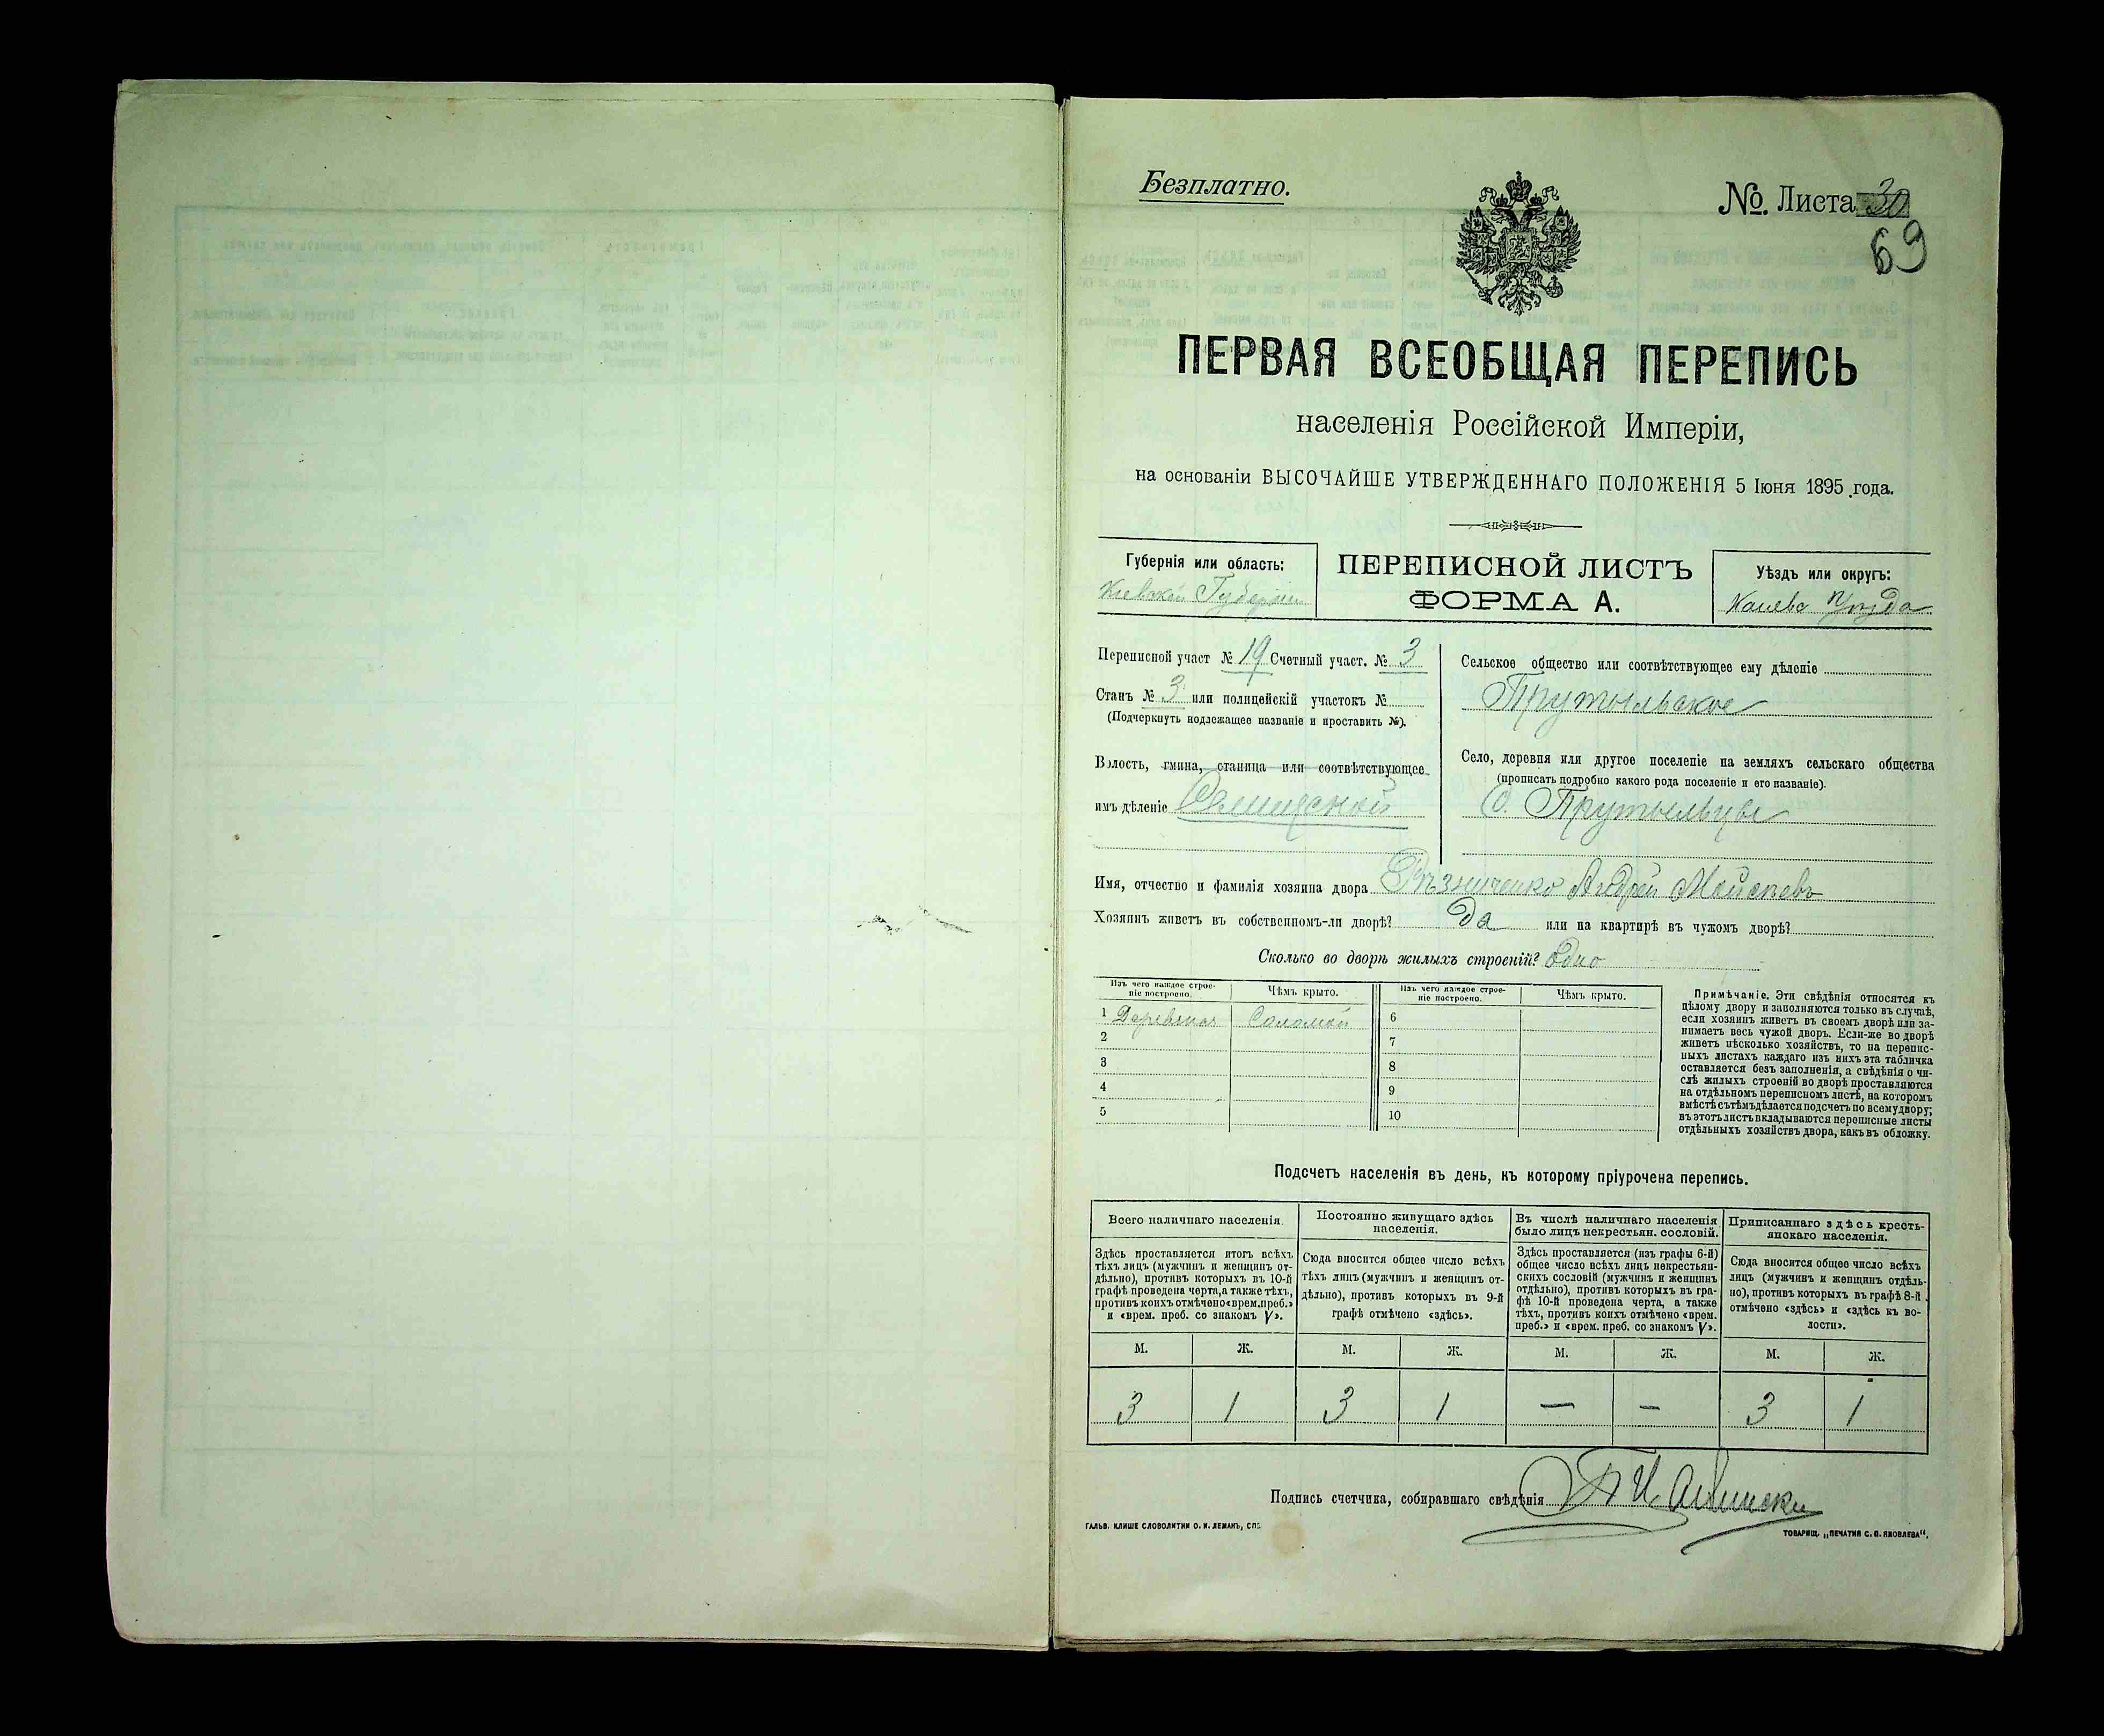 Безплатно.
№. Листа 30
69
ПЕРВАЯ ВСЕОБЩАЯ ПЕРЕПИСЬ
населенія Россійской Имперіи,
на основаніи ВЫСОЧАЙШЕ УТВЕРЖДЕННАГО ПОЛОЖЕНІЯ 5 Іюня 1895 года.
Губернія или область:
Кіевской Губерніи
ПЕРЕПИСНОЙ ЛИСТЪ
ФОРМА А.
Уѣздъ или округъ:
Канева Уѣзда
Переписной участ № 19 Счетный участ. № 3
Станъ № 3 или полицейскій участокъ №
(Подчеркнуть подлежащее названіе и проставить №).
Волость, гмина, станица или соотвѣтствующее
имъ дѣленіе
Сельское общество или соотвѣтствующее ему дѣленіе
Прутыльское
Село, деревня или другое поселеніе на земляхъ сельскаго общества
(прописать подробно какого рода поселеніе и его названіе).
С. Прутыльцы
Имя, отчество и фамилія хозяина двора Рѣзниченко Андрей Мойсеевъ
Хозяинъ живетъ въ собственномъ-ли дворѣ? Да или на квартирѣ въ чужомъ дворѣ?
Сколько во дворѣ жилыхъ строеній? Одно
Изъ чего каждое строе-
ніе построено.
Чѣмъ крыто.
Изъ чего каждое строе-
ніе построено.
Чѣмъ крыто.
1 Деревяная Соломой 6
2 7
3 8
4 9
5 10
Примѣчаніе. Эти свѣдѣнія относятся къ
цѣлому двору и заполняются только въ случаѣ,
если хозяинъ живетъ въ своемъ дворѣ или за-
нимаетъ весь чужой дворъ. Если-же во дворѣ
живетъ нѣсколько хозяйствъ, то на перепис-
ныхъ листахъ каждаго изъ нихъ эта табличка
оставляется безъ заполненія, а свѣдѣнія о чи-
слѣ жилыхъ строеній во дворѣ проставляются
на отдѣльномъ переписномъ листѣ, на которомъ
вмѣстѣ съ тѣмъ дѣлается подсчетъ по всему двору;
въ этотъ листъ вкладываются переписные листы
отдѣльныхъ хозяйствъ двора, какъ въ обложку.
Подсчетъ населенія въ день, къ которому пріурочена перепись.
Всего наличнаго населенія.
Здѣсь проставляется итогъ всѣхъ
тѣхъ лицъ (мужчинъ и женщинъ от-
дѣльно), противъ которыхъ въ 10-й
графѣ проведена черта, а также тѣхъ,
противъ коихъ отмѣчено «врем. преб.»
и «врем. преб. со знакомъ V».
Постоянно живущаго здѣсь
населенія.
Сюда вносится общее число всѣхъ
тѣхъ лицъ (мужчинъ и женщинъ от-
дѣльно), противъ которыхъ въ 9-й
графѣ отмѣчено «здѣсь».
Въ числѣ наличнаго населенія
было лицъ некрестьян. сословій.
Здѣсь проставляется (изъ графы 6-й)
общее число всѣхъ лицъ некрестьян-
скихъ сословій (мужчинъ и женщинъ
отдѣльно), противъ которыхъ въ гра-
фѣ 10-й проведена черта, а также
тѣхъ, противъ коихъ отмѣчено «врем.
преб.» и «врем. преб. со знакомъ V».
Приписаннаго здѣсь кресть-
янскаго населенія.
Сюда вносится общее число всѣхъ
лицъ (мужчинъ и женщинъ отдѣль-
но), противъ которыхъ въ графѣ 8-й
отмѣчено «здѣсь» и «здѣсь къ во-
лости».
М. Ж. М. Ж. М. Ж. М. Ж.
3 1 3 1 — — 3 1
Подпись счетчика, собиравшаго свѣдѣнія
ГАЛЬВ. КЛИШЕ СЛОВОЛИТНИ О. И. ЛЕМАНЪ, СПБ.
ТОВАРИЩ. „ПЕЧАТНЯ С. П. ЯКОВЛЕВА“.